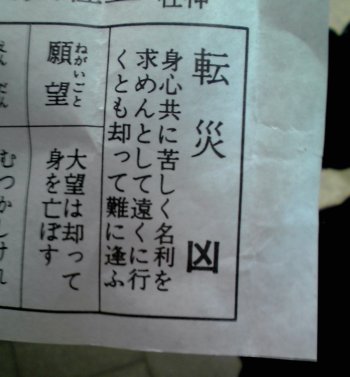 転災 凶
身心共に苦しく名利を
求めんとして遠くに行
くとも却って難に逢ふ
願望
ねがいごと
大望は却って
身を亡ぼす
むつかしけれ